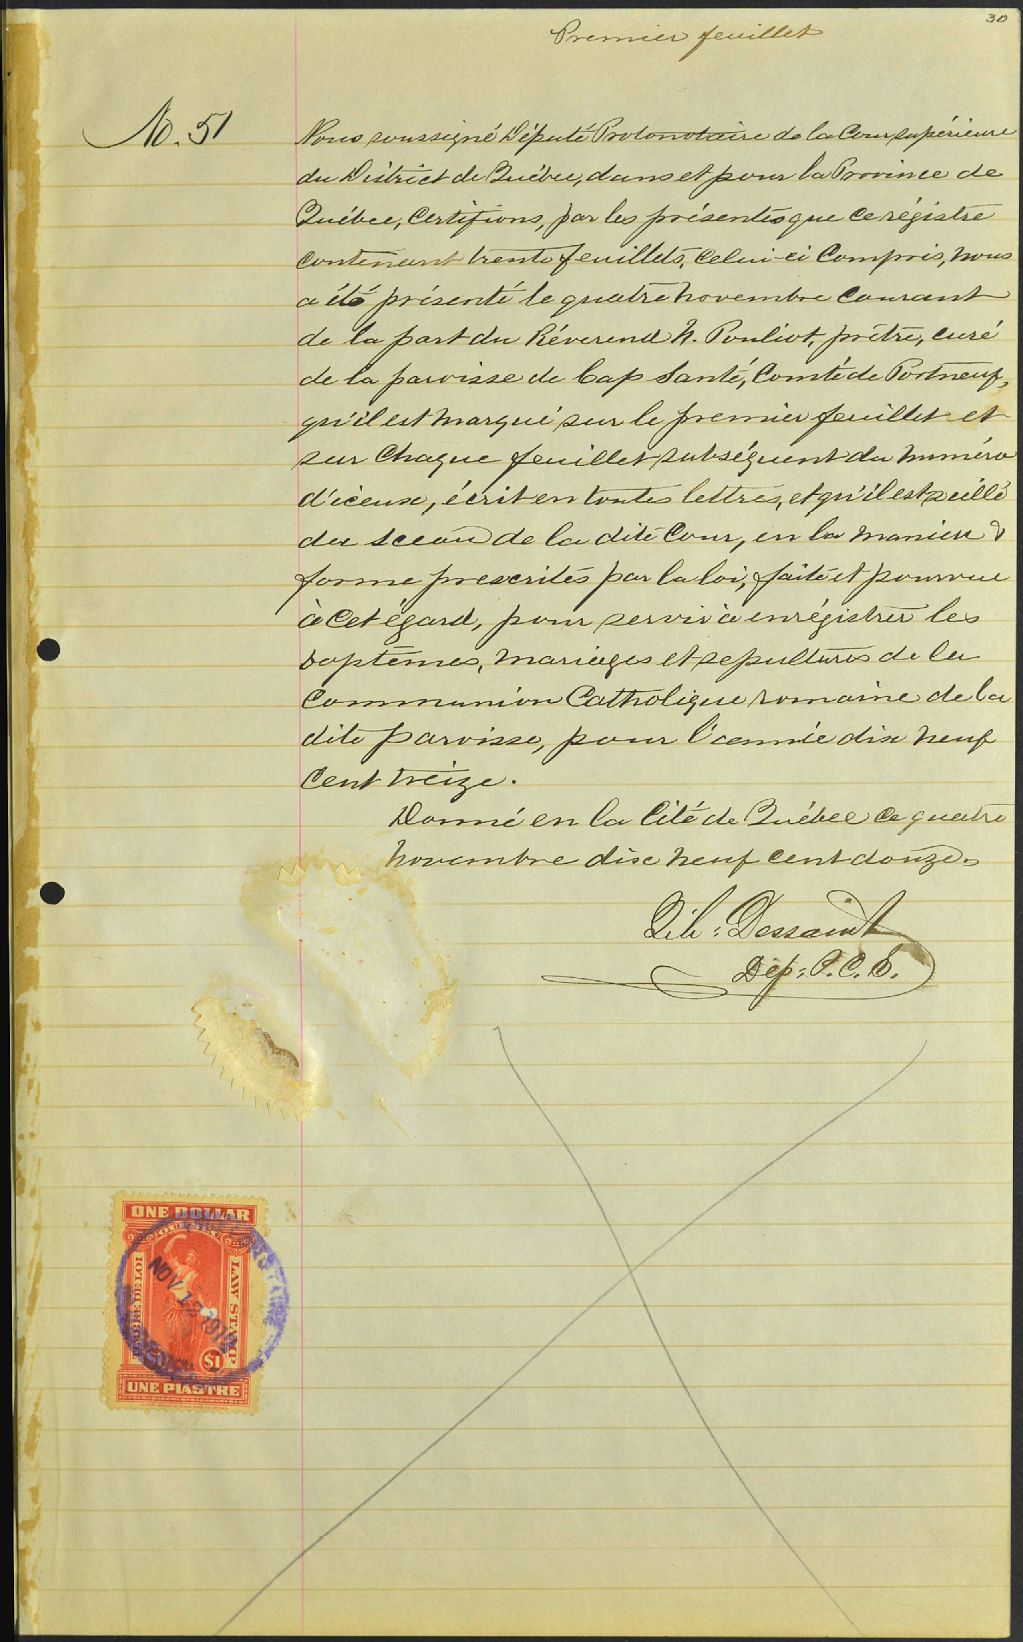 30
Premier feuillet
No. 51
Nous soussigné Député Protonotaire de la Cour supérieure
du District de Québec, dans et pour la Province de
Québec, Certifions, par les présentes que ce régistre
contenant trente feuillets, celui-ci Compris, nous
a été présenté le quatre novembre courant
de la part du Réverend N. Pouliot, prêtre, curé
de la paroisse de Cap Santé, Comté de Portneuf,
qu'il est marqué sur le premier feuillet et
sur chaque feuillet subséquent du numéro
d'iceux, écrit en toutes lettres, et qu'il est scellé
du sceau de la dite Cour, en la maniere &
forme prescrites par la loi, faite et pourvue
à cet égard, pour servir à enrégistrer les
baptêmes, mariages et sepultures de la
Communion Catholique romaine de la
dite paroisse, pour l'année dix neuf
cent treize.
Donné en la Cité de Québec ce quatre
novembre dix neuf cent douze.
Dessaint
Dép: P. C. S.
ONE DOLLAR
TIMBRE DE LOI
LAW STAMP
NOV 12 1912
$1
UNE PIASTRE